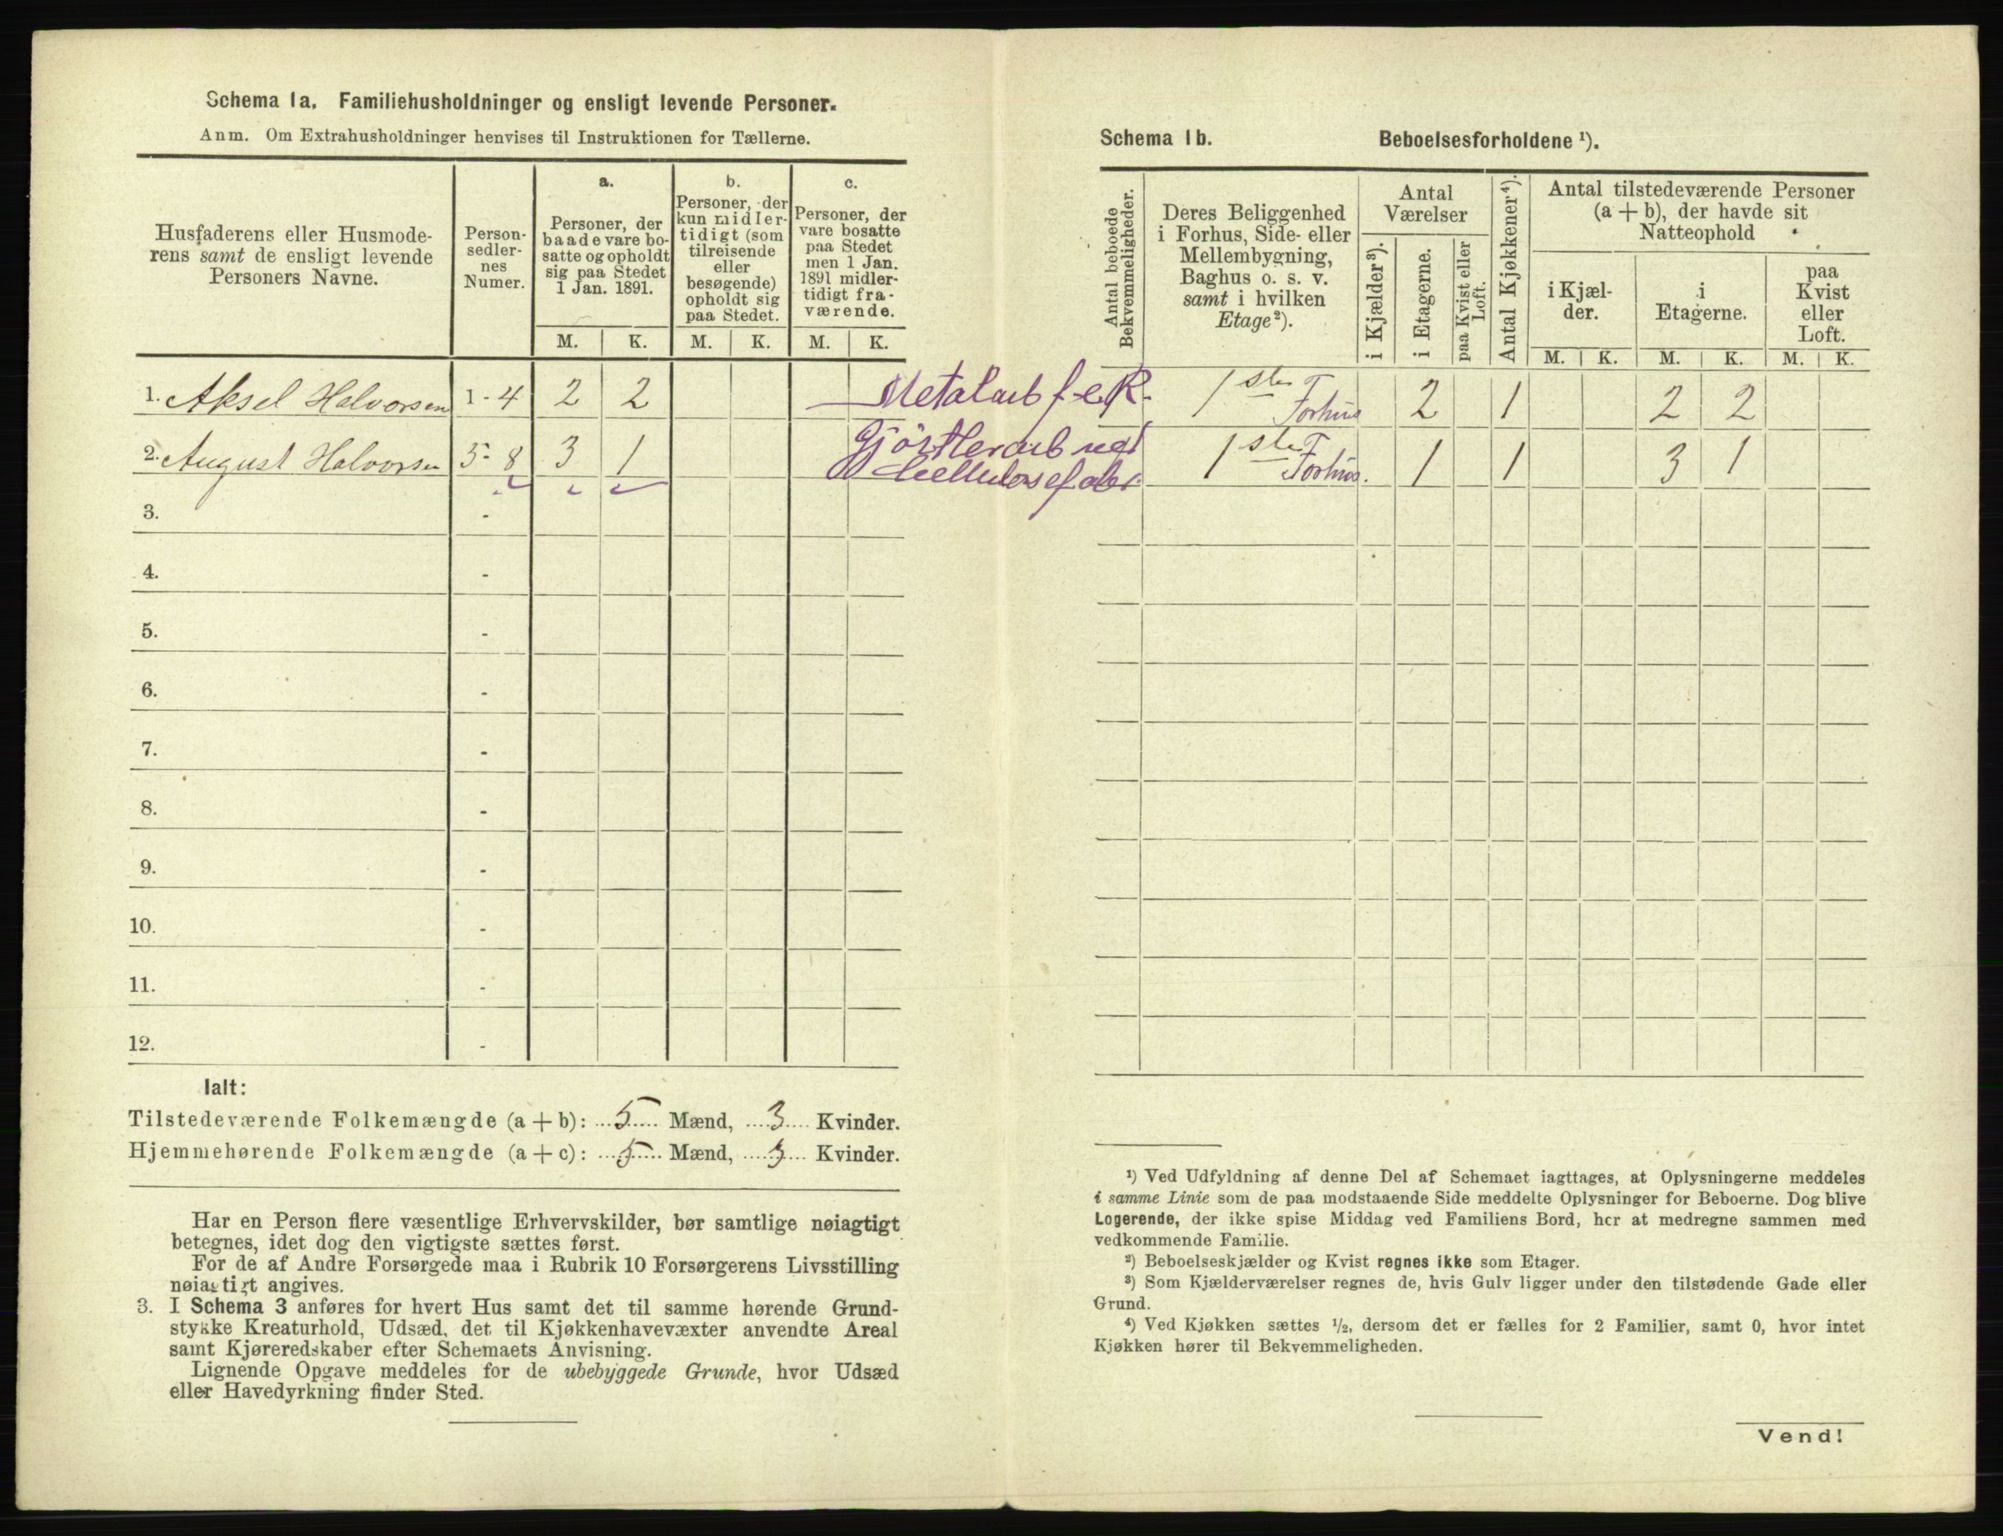 Schema 1a. Familiehusholdninger og ensligt levende Personer.
Anm. Om Extrahusholdninger henvises til Instruktionen for Tællerne.
Husfaderens eller Husmode-
rens samt de ensligt levende
Personers Navne.
Person-
sedler-
nes
Numer.
a.
Personer, der
baade vare bo-
satte og opholdt
sig paa Stedet
1 Jan. 1891.
b.
Personer, der
kun midler-
tidigt (som
tilreisende
eller
besøgende)
opholdt sig
paa Stedet.
c.
Personer, der
vare bosatte
paa Stedet
men 1 Jan.
1891 midler-
tidigt fra-
værende.
M. K. M. K. M. K.
1. Aksel Halvorsen 1-4 2 2 Metalarb
2. August Halvorsen 5-8 3 1
Cellulosefabr.
3. -
4. -
5. -
6. -
7. -
8. -
9. -
10. -
11. -
12. -
Ialt:
Tilstedeværende Folkemængde (a + b): 5 Mænd, 3 Kvinder.
Hjemmehørende Folkemængde (a + c): 5 Mænd, 3 Kvinder.
Har en Person flere væsentlige Erhvervskilder, bør samtlige nøiagtigt
betegnes, idet dog den vigtigste sættes først.
For de af Andre Forsørgede maa i Rubrik 10 Forsørgerens Livsstilling
nøiagtigt angives.
3. I Schema 3 anføres for hvert Hus samt det til samme hørende Grund-
stykke Kreaturhold, Udsæd, det til Kjøkkenhavevæxter anvendte Areal
samt Kjøreredskaber efter Schemaets Anvisning.
Lignende Opgave meddeles for de ubebyggede Grunde, hvor Udsæd
eller Havedyrkning finder Sted.
Schema 1b. Beboelsesforholdene ¹).
Antal beboede
Bekvemmeligheder.
Deres Beliggenhed
i Forhus, Side- eller
Mellembygning,
Baghus o. s. v.
samt i hvilken
Etage²).
Antal
Værelser
i Kjælder³).
i Etagerne.
paa Kvist eller
Loft.
Antal Kjøkkener⁴).
Antal tilstedeværende Personer
(a + b), der havde sit
Natteophold
i Kjæl-
der.
i
Etagerne.
paa
Kvist
eller
Loft.
M. K. M. K. M. K.
1ste Forhus 2 1 2 2
1ste Forhus. 1 1 3 1
¹) Ved Udfyldning af denne Del af Schemaet iagttages, at Oplysningerne meddeles
i samme Linie som de paa modstaaende Side meddelte Oplysninger for Beboerne. Dog blive
Logerende, der ikke spise Middag ved Familiens Bord, her at medregne sammen med
vedkommende Familie.
²) Beboelseskjælder og Kvist regnes ikke som Etager.
³) Som Kjælderværelser regnes de, hvis Gulv ligger under den tilstødende Gade eller
Grund.
⁴) Ved Kjøkken sættes ½, dersom det er fælles for 2 Familier, samt 0, hvor intet
Kjøkken hører til Bekvemmeligheden.
Vend!